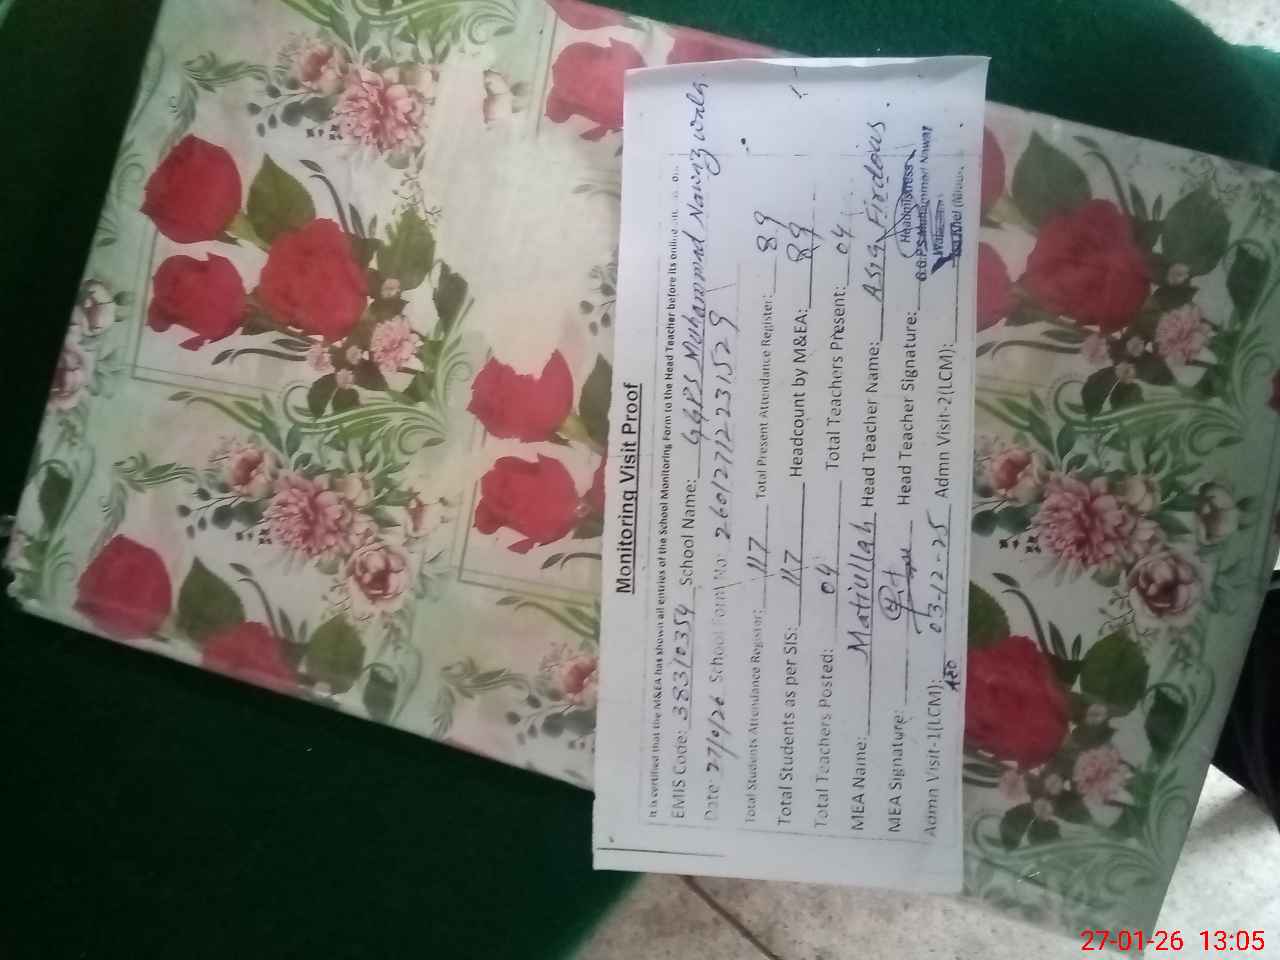 Monitoring Visit Proof
It is certified that the M&EA has shown all entries of the School Monitoring Form to the Head Teacher before its online
EMIS Code: 38310354 School Name: GGPS Muhammad Nawaz wala
Date: 27/0/26 School Form No: 260127122231529
Total Students Attendance Register: 117 Total Present Attendance Register: 89
Total Students as per SIS: 117 Headcount by M&EA: 89
Total Teachers Posted: 04 Total Teachers Present: 04
MEA Name: Matiullah Head Teacher Name: Asia Firdous.
MEA Signature: Head Teacher Signature:
Headmistress
G.G.P.S Muhammad Nawaz
Admn Visit-1(LCM): 03-12-25 Admn Visit-2(LCM):
AEO
27-01-26 13:05